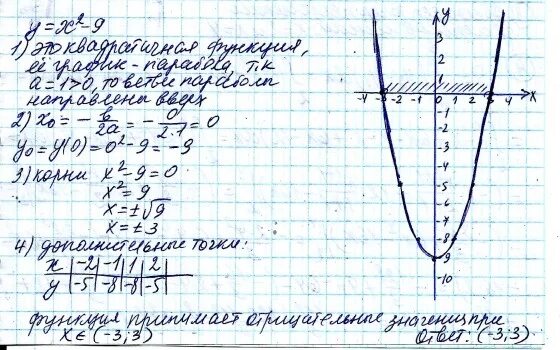 y = x² - 9
1) это квадратичная функция,
её график - парабола, т.к
a = 1 > 0, то ветви параболы
направлены вверх
2) x₀ = - b/2a = - 0/2·1 = 0
y₀ = y(0) = 0² - 9 = -9
3) корни x² - 9 = 0
x² = 9
x = ±√9
x = ±3
4) дополнительные точки:
x | -2 | -1 | 1 | 2
y | -5 | -8 | -8 | -5
функция принимает отрицательные значения при
x ∈ (-3; 3)
Ответ: (-3; 3).
y
4
3
2
1
-4 -3 -2 -1 0 1 2 3 4 x
-1
-2
-3
-4
-5
-6
-7
-8
-9
-10